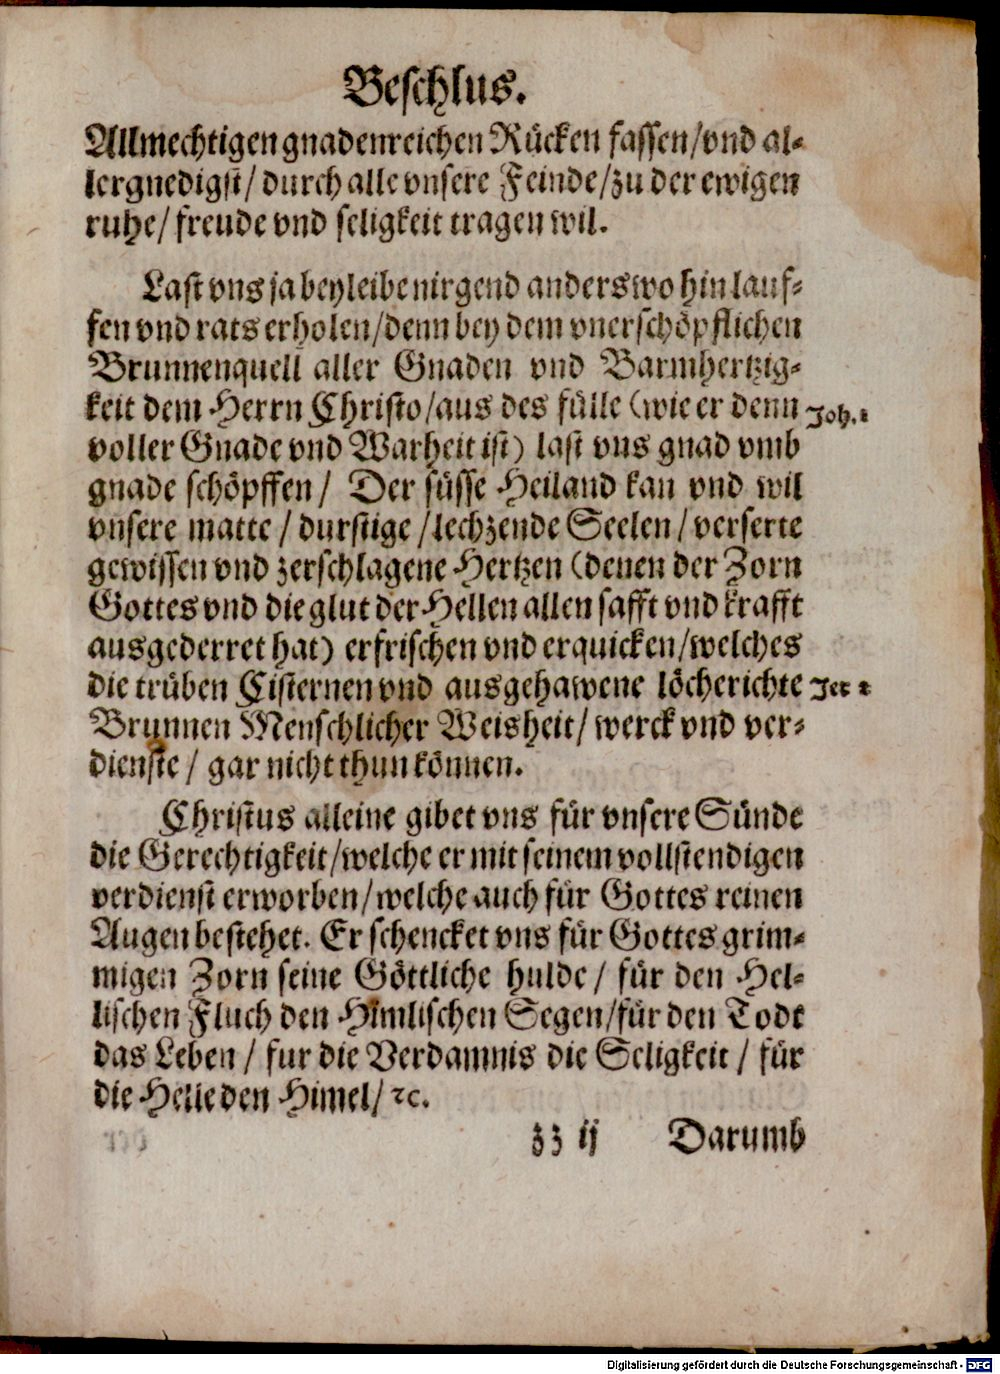 Beschlus.
Allmechtigen gnadenreichen Rücken fassen/vnd al-
lergnedigst/ durch alle vnsere Feinde/zu der ewigen
ruhe/ freude vnd seligkeit tragen wil.
Last vns ja bey leibe nirgend anderswo hin lauf-
fen vnd rats erholen/denn bey dem vnerschöpflichen
Brunnenquell aller Gnaden vnd Barmhertzig-
keit dem Herrn Christo/aus des fülle (wie er denn Joh. 1
voller Gnade vnd Warheit ist) last vns gnad vmb
gnade schöpffen/ Der süsse Heiland kan vnd wil
vnsere matte / durstige /lechzende Seelen/ verserte
gewissen vnd zerschlagene Hertzen (denen der Zorn
Gottes vnd die glut der Hellen allen safft vnd krafft
ausgederret hat) erfrischen vnd erquicken/welches
die trüben Cisternen vnd ausgehawene löcherichte Jer 2
Brunnen Menschlicher Weisheit/ werck vnd ver-
dienste / gar nicht thun können.
Christus alleine gibet vns für vnsere Sünde
die Gerechtigkeit/welche er mit seinem vollstendigen
verdienst erworben/welche auch für Gottes reinen
Augen bestehet. Er schencket vns für Gottes grim-
migen Zorn seine Göttliche hulde / für den Hel-
lischen Fluch den Himlischen Segen/für den Todt
das Leben / fur die Verdamnis die Seligkeit / für
die Helle den Himel/ ꝛc.
zz ij Darumb
Digitalisierung gefördert durch die Deutsche Forschungsgemeinschaft - DFG